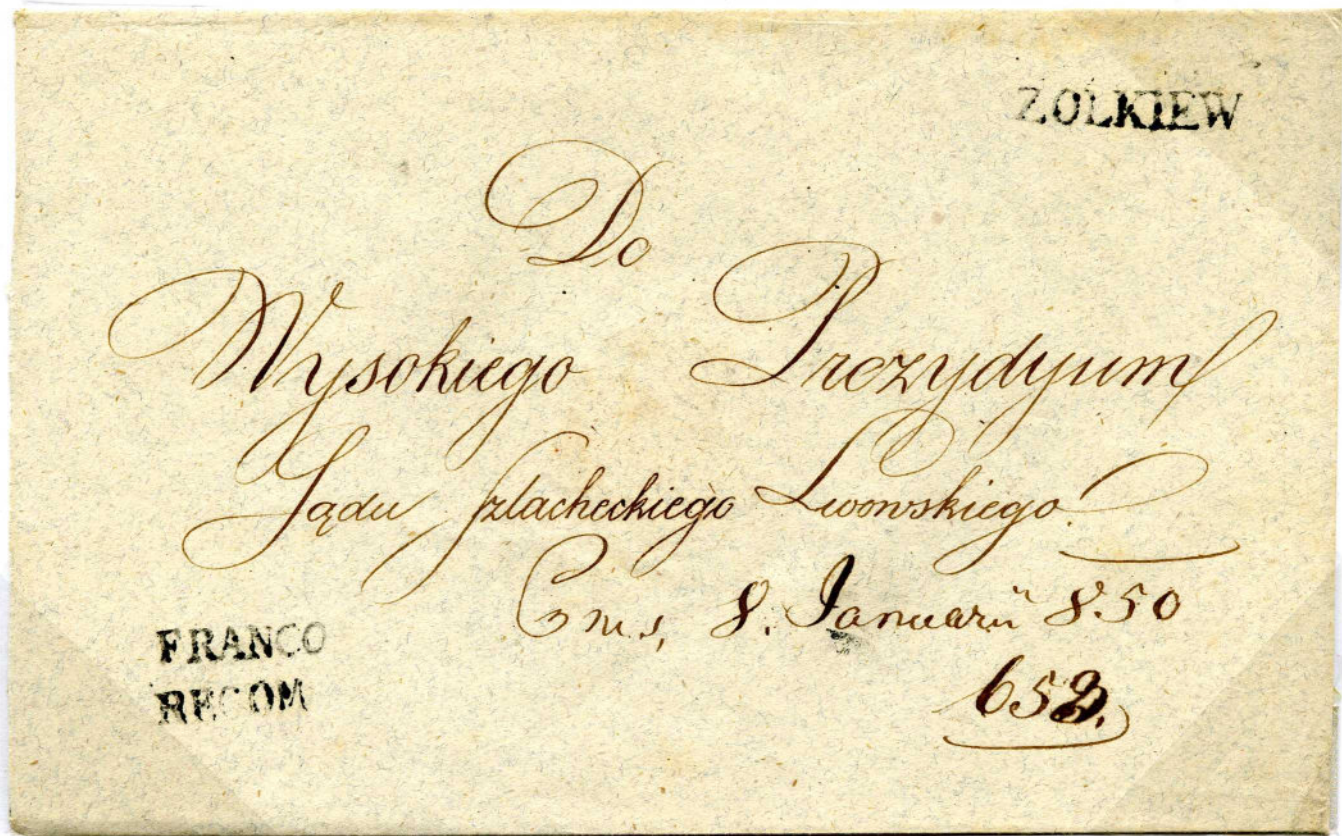 ZOLKIEW
Do
Wysokiego Prezydyum
Sądu Szlacheckiego Lwowskiego.
8. Januarii 850
FRANCO
RECOM